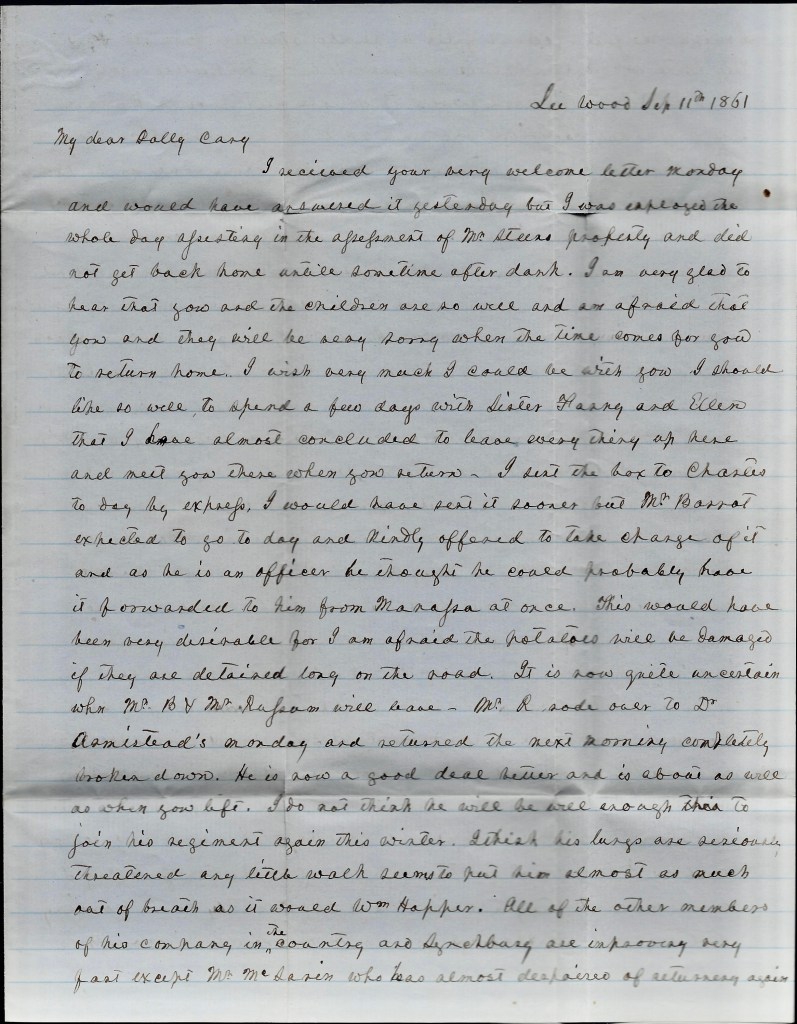 Lee Wood Sep 11th 1861
My dear Sally Cary
I recieved your very welcome letter Monday
and would have answered it yesterday but I was employed the
whole day assisting in the assessment of Mr Steens property and did
not get back home untill sometime after dark. I am very glad to
hear that you and the children are so well and am afraid that
you and they will be very sorry when the time comes for you
to return home. I wish very much I could be with you I should
like so well to spend a few days with Sister Fanny and Ellen
that I have almost concluded to leave every thing up here
and meet you there when you return - I sent the box to Charles
to day by express. I would have sent it sooner but Mr Barrot
expected to go to day and kindly offered to take charge of it
and as he is an officer he thought he could probably have
it forwarded to him from Manassa at once. This would have
been very desirable for I am afraid the potatoes will be damaged
if they are detained long on the road. It is now quite uncertain
when Mr. B & Mr. Russum will leave - Mr. R rode over to Dr
Armistead's monday and returned the next morning completely
broken down. He is now a good deal better and is about as well
as when you left. I do not think he will be well enough to
join his regiment again this winter. I think his lungs are seriously
threatened any little walk seems to put him almost as much
out of breath as it would Wm Hopper. All of the other members
of his company in the country and Lynchburg are improving very
fast except Mr. who has almost despaired of returning again